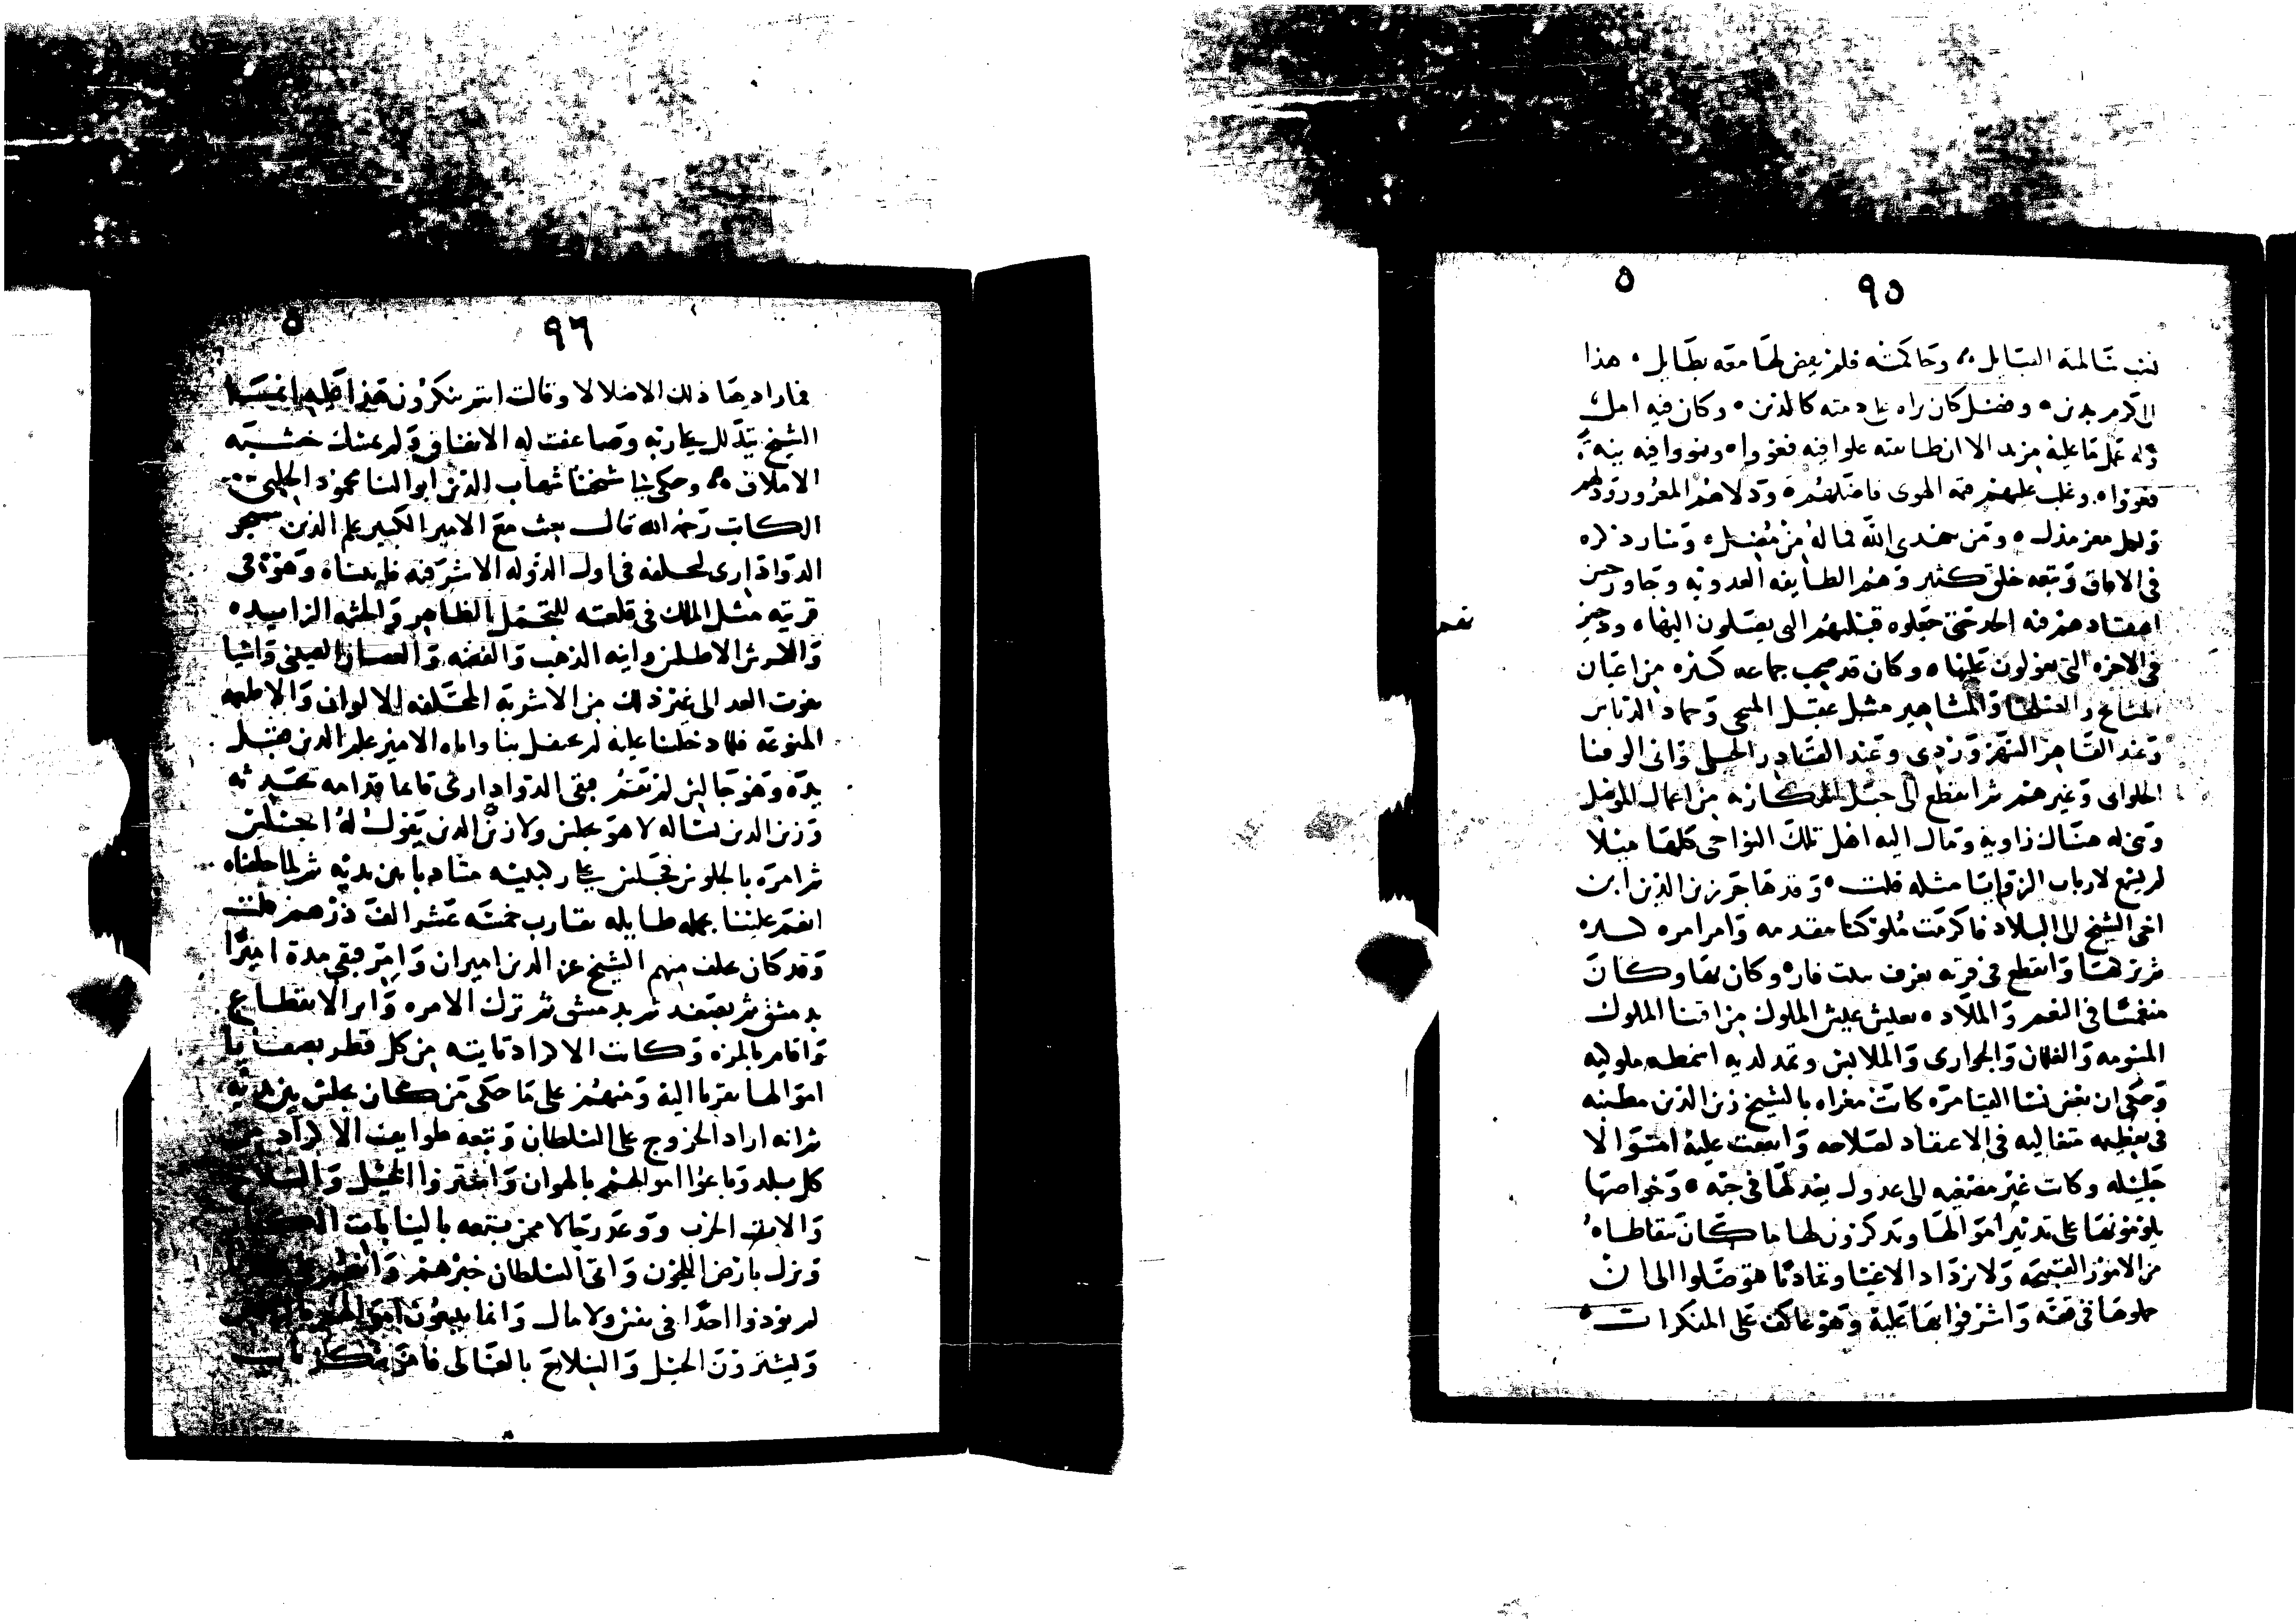 ٩٥
٥
سالمته القبايل وحاكمته فلم يعض لها معه بطايل هذا
وفضل كان يراه على ذمته كالدين وكان فيه امل
الا ان طايفته غلوا فيه فغووا ونووا فيه نية
فغووا وغلب عليهم حمه الهوى فاضلهم ودلاهم الغرور
ولعل معز مذل ومن يهدى الله فما له من مضل وسار ذكره
فى الافاق وتبعه خلق كثير وهم الطايفه العدويه وجاوز حسن
اعتقادهم فيه الحد حتى جعلوه قبلتهم التى يصلون اليها وذخيرتهم
فى الاخره التى يعولون عليها وكان قد صحب جماعه كثيره من اعيان
المشايخ والصلحا والمشاهير مثل عقيل المنبجى وحماد الدباس
وعبد القاهر السهروردى وعبد القادر الجيلى وابى الوفا
الحلوانى وغيرهم ثم انقطع الى جبل الهكاريه من اعمال الموصل
وبنى له هناك زاوية ومال اليه اهل تلك النواحى كلها ميلا
لم يسمع لارباب الزوايا مثله قلت وقد هاجر زين الدين ابن
اخى الشيخ الى البلاد فاكرمت ملوكنا مقدمه وامر امره
ثم تركها وانقطع فى قريه تعرف ببيت فار وكان بها وكان
منغمسا فى النعم والملاد يعيش عيش الملوك من اقتنا الملوك
المسومه والغلمان والجوارى والملابس وتمد لديه اسمطه ملوكيه
وحكى ان بعض نسا القيامره كانت مغراه بالشيخ زين الدين مطنبه
فى تعظيمه متغاليه فى الاعتقاد لصلاحه وانفقت عليه اموالا
جليله وكانت غير مصغيه الى عدول يعدلها فى حبه وخواصها
يلومونها على تدبير اموالها ويذكرون لها ما كان يتعاطاه
من الامور القبيحه ولا يزداد الاغيا وتماديا حتى وصلوا الى ان
حملوها فى قفه واشرفوا بها عليه وهو عاكف على المنكرات
٩٦
٥
فما زادها ذلك الا ضلالا وقالت انتم تنكرون هذا
الشيخ يتدلل على ربه وضاعفت له الانفاق ولم تمسك خشيه
الاملاق وحكى لنا شيخنا شهاب الدين ابو الثنا محمود الحلبى
الكاتب رحمه الله قال بعث مع الامير الكبير علم الدين سنجر
الدوادارى لنحلفه فى اول الدوله الاشرفيه فاتيناه وهو فى
قريته مثل الملك فى قلعته للتجمل الظاهر والحشمه الزايده
والفرش الاطلس وانيه الذهب والفضه والغضار الصينى واشيا
تفوت العد الى غير ذلك من الاشربة المختلفه الالوان والاطعمه
المنوعه فلما دخلنا عليه لم يحفل بنا واتاه الامير علم الدين فقبل
يده وهو جالس لم يقم فبقى الدوادارى قايما قدامه يحدثه
وزين الدين يساله لا هو يجلس ولا زين الدين يقول له اجلس
ثم امره بالجلوس فجلس على ركبتيه متادبا بين يديه ثم لما حلفناه
انعم علينا بجمله طايله تقارب خمسه عشر الف درهم قلت
وقد كان تخلف منهم الشيخ عز الدين اميران وامر فبقى مدة اميرا
بدمشق ثم بصفد ثم بدمشق ثم ترك الامره واثر الانقطاع
واقام بالمزه وكانت الاكراد تاتيه من كل قطر بصفايا
اموالها تقربا اليه ومنهم على ما حكى من كان يجلس بين يديه
ثم انه اراد الخروج على السلطان وتبعه طوايف الاكراد من
كل بلد وباعوا اموالهم بالهوان واشتروا الخيل والسلاح
والات الحرب ووعد رجالا ممن يتبعه بالنيابات
ونزل بارض اللجون واتى السلطان خبرهم وانهم
لم يوذوا احدا فى نفس ولا مال وانما يبيعون اموالهم
ويشترون الخيل والسلاح بالغالى فامر